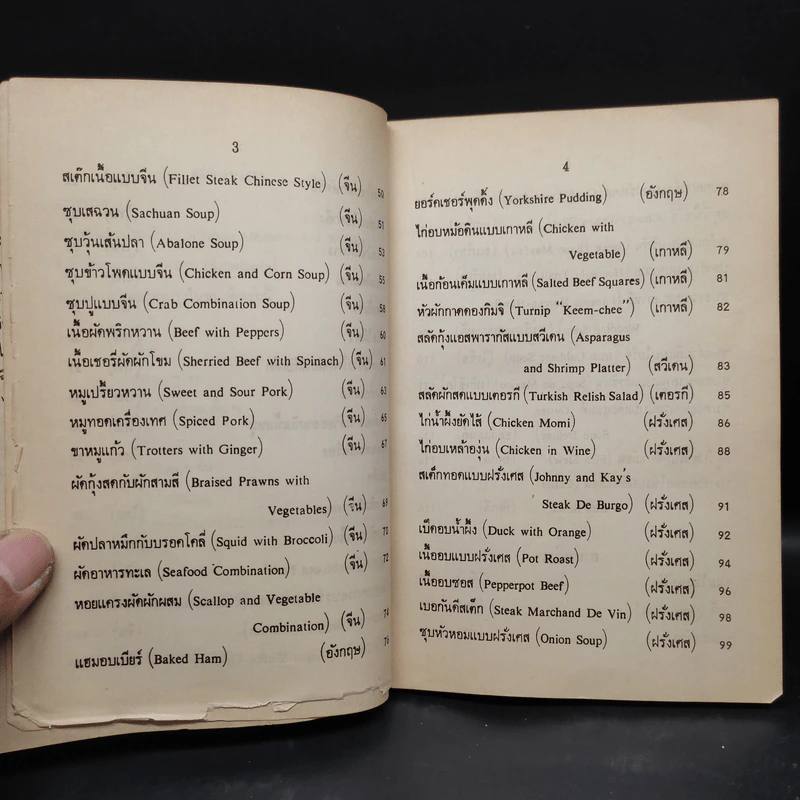 3
สเต๊กเนื้อแบบจีน (Fillet Steak Chinese Style) (จีน) 50
ซุบเสฉวน (Sachuan Soup) (จีน) 51
ซุบวุ้นเส้นปลา (Abalone Soup) (จีน) 53
ซุบข้าวโพดแบบจีน (Chicken and Corn Soup) (จีน) 55
ซุบปูแบบจีน (Crab Combination Soup) (จีน) 58
เนื้อผัดพริกหวาน (Beef with Peppers) (จีน) 60
เนื้อเชอรี่ผัดผักโขม (Sherried Beef with Spinach) (จีน) 61
หมูเปรี้ยวหวาน (Sweet and Sour Pork) (จีน) 63
หมูทอดเครื่องเทศ (Spiced Pork) (จีน) 65
ขาหมูแก้ว (Trotters with Ginger) (จีน) 67
ผัดกุ้งสดกับผักสามสี (Braised Prawns with
Vegetables) (จีน) 69
ผัดปลาหมึกกับบรอคโคลี่ (Squid with Broccoli) (จีน) 70
ผัดอาหารทะเล (Seafood Combination) (จีน) 72
หอยแครงผัดผักผสม (Scallop and Vegetable
Combination) (จีน) 74
แฮมอบเบียร์ (Baked Ham) (อังกฤษ) 76
4
ยอร์คเชอร์พุดดิ้ง (Yorkshire Pudding) (อังกฤษ) 78
ไก่อบหม้อดินแบบเกาหลี (Chicken with
Vegetable) (เกาหลี) 79
เนื้อก้อนเค็มแบบเกาหลี (Salted Beef Squares) (เกาหลี) 81
หัวผักกาดดองกิมจิ (Turnip "Keem-chee") (เกาหลี) 82
สลัดกุ้งแอสพารากัสแบบสวีเดน (Asparagus
and Shrimp Platter) (สวีเดน) 83
สลัดผักสดแบบเตอรกี (Turkish Relish Salad) (เตอรกี) 85
ไก่น้ำผึ้งยัดไส้ (Chicken Momi) (ฝรั่งเศส) 86
ไก่อบเหล้าองุ่น (Chicken in Wine) (ฝรั่งเศส) 88
สเต็กทอดแบบฝรั่งเศส (Johnny and Kay's
Steak De Burgo) (ฝรั่งเศส) 91
เป็ดอบน้ำผึ้ง (Duck with Orange) (ฝรั่งเศส) 92
เนื้ออบแบบฝรั่งเศส (Pot Roast) (ฝรั่งเศส) 94
เนื้ออบซอส (Pepperpot Beef) (ฝรั่งเศส) 96
เบอกันดีสเต็ก (Steak Marchand De Vin) (ฝรั่งเศส) 98
ซุบหัวหอมแบบฝรั่งเศส (Onion Soup) (ฝรั่งเศส) 99